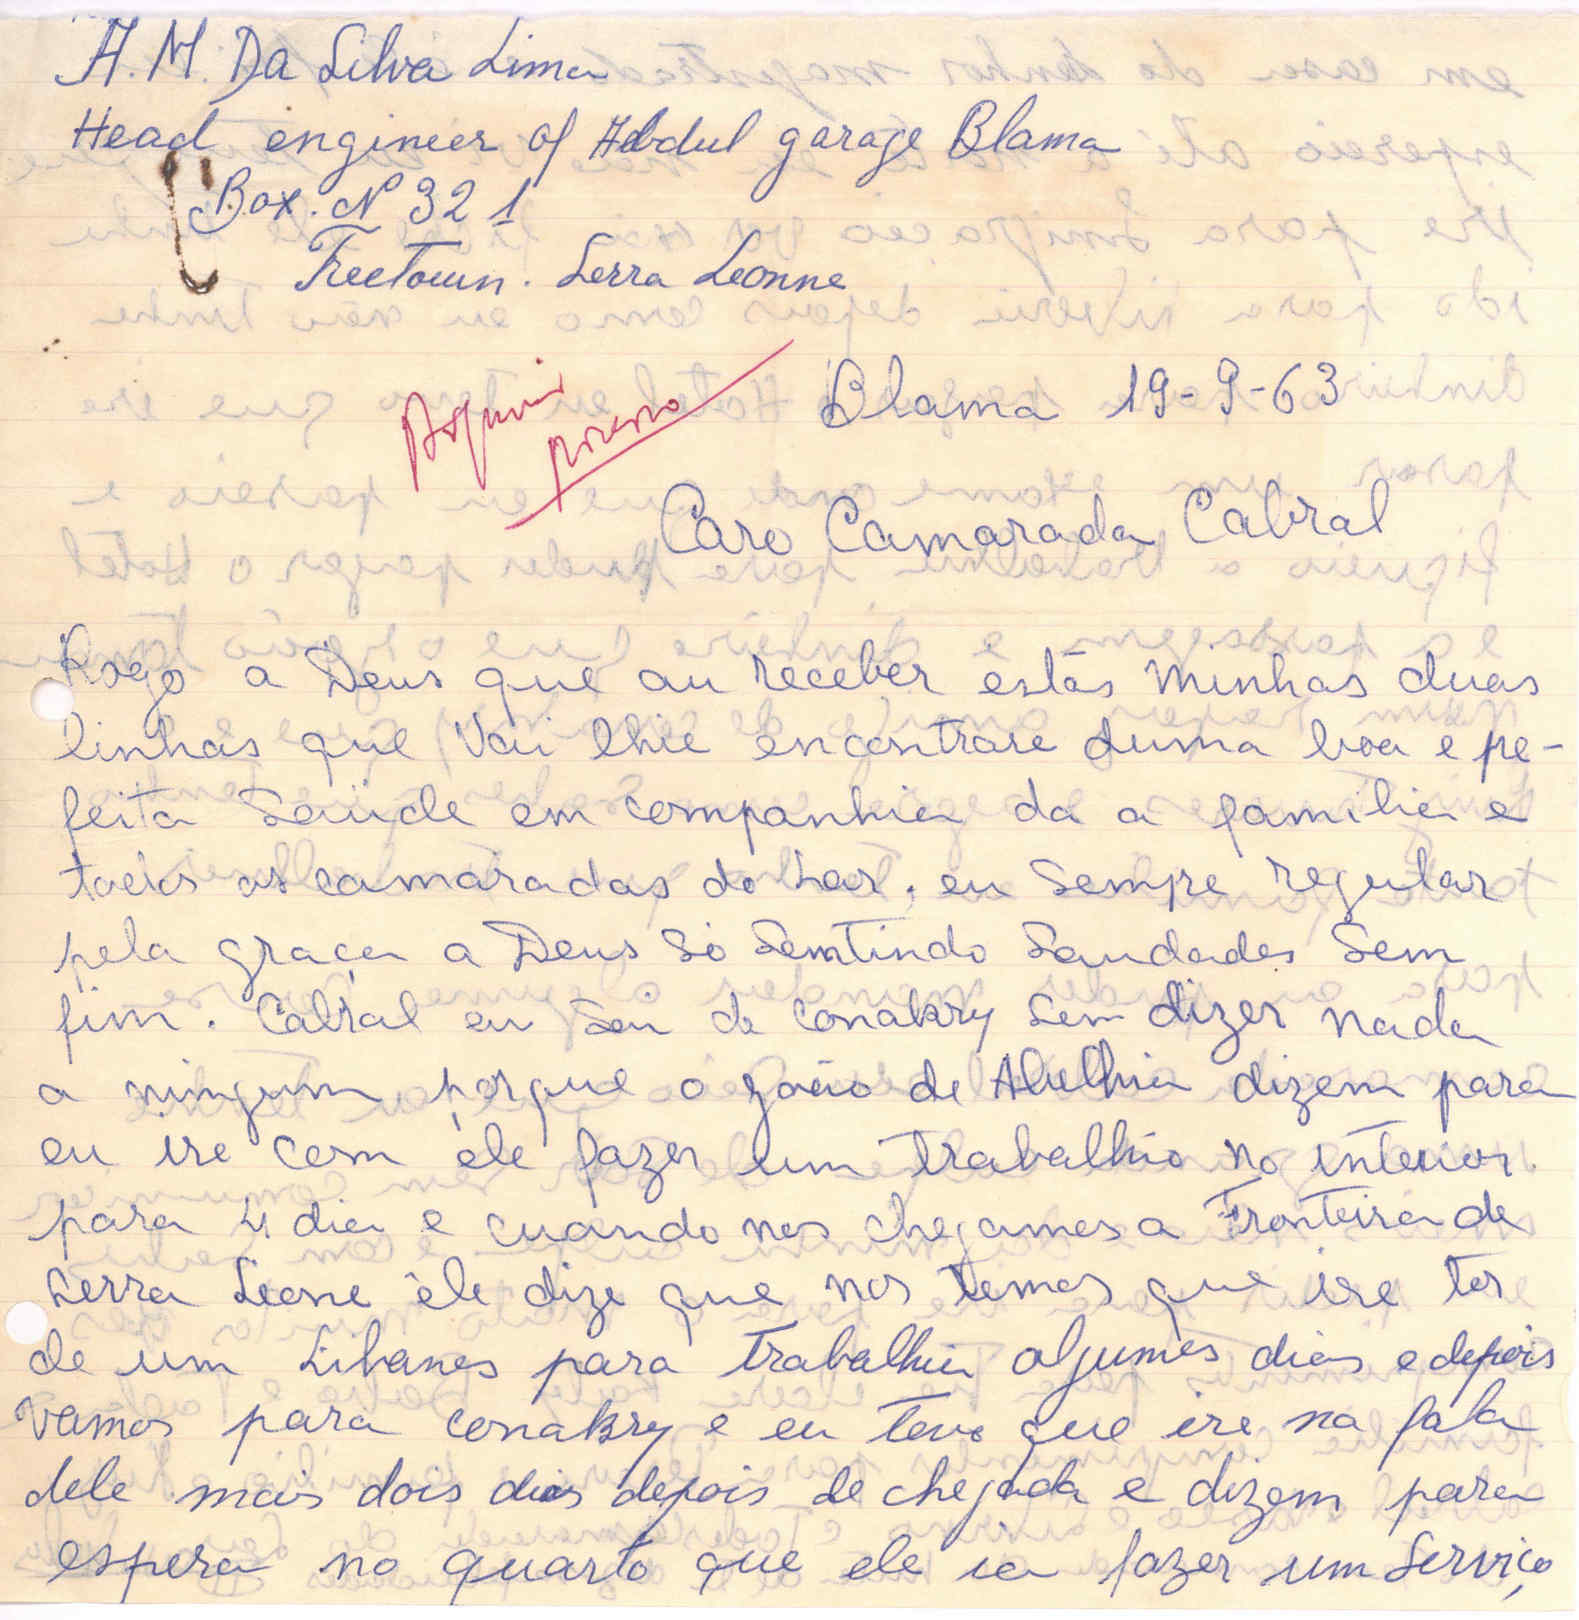 A. M. Da Silva Lima
Head engineer of Abdul garage Blama
Box. Nº 321
Freetown. Serra Leonne
Blama 19-9-63
Arquivar
processo
Caro Camarada Cabral
Rogo a Deus que au receber estás minhas duas
linhas que vai lhie encontrare duma boa e pe-
feita Saúde em companhia da a familia e
todos as camaradas do Lar, eu Sempre regular
pela graça a Deus Só Semtindo Saudades Sem
fim. Cabral eu Sai de Conakry Sem dizer nada
a ningum porque o joão de dizem para
eu ire com éle fazer um trabalhio no interior
para 4 dia e cuando nos chegamos a Fronteira de
Serra Leone éle dize que nos temos que ire ter
de um Libanes para trabalhia algumes dias e depois
Vamos para conakry e eu teve que ire na fala
dele mais dois dias depois de chegada e dizem para
espera no quarto que ele ia fazer um Serviço